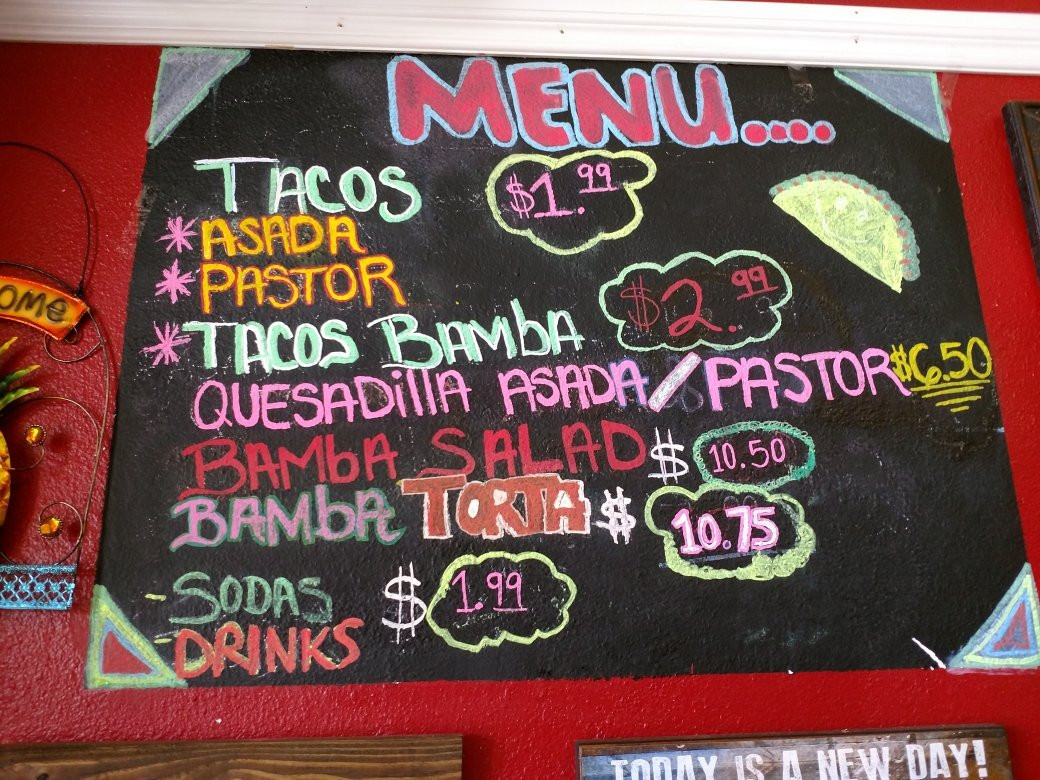 MENU....
TACOS $1.99
* ASADA
* PASTOR
* TACOS BAMBA $2.99
QUESADillA ASADA/PASTOR $6.50
BAMbA SALAD $ 10.50
BAMbA TORTA $ 10.75
- SODAS $ 1.99
- DRINKS
OME
TODAY IS A NEW DAY!